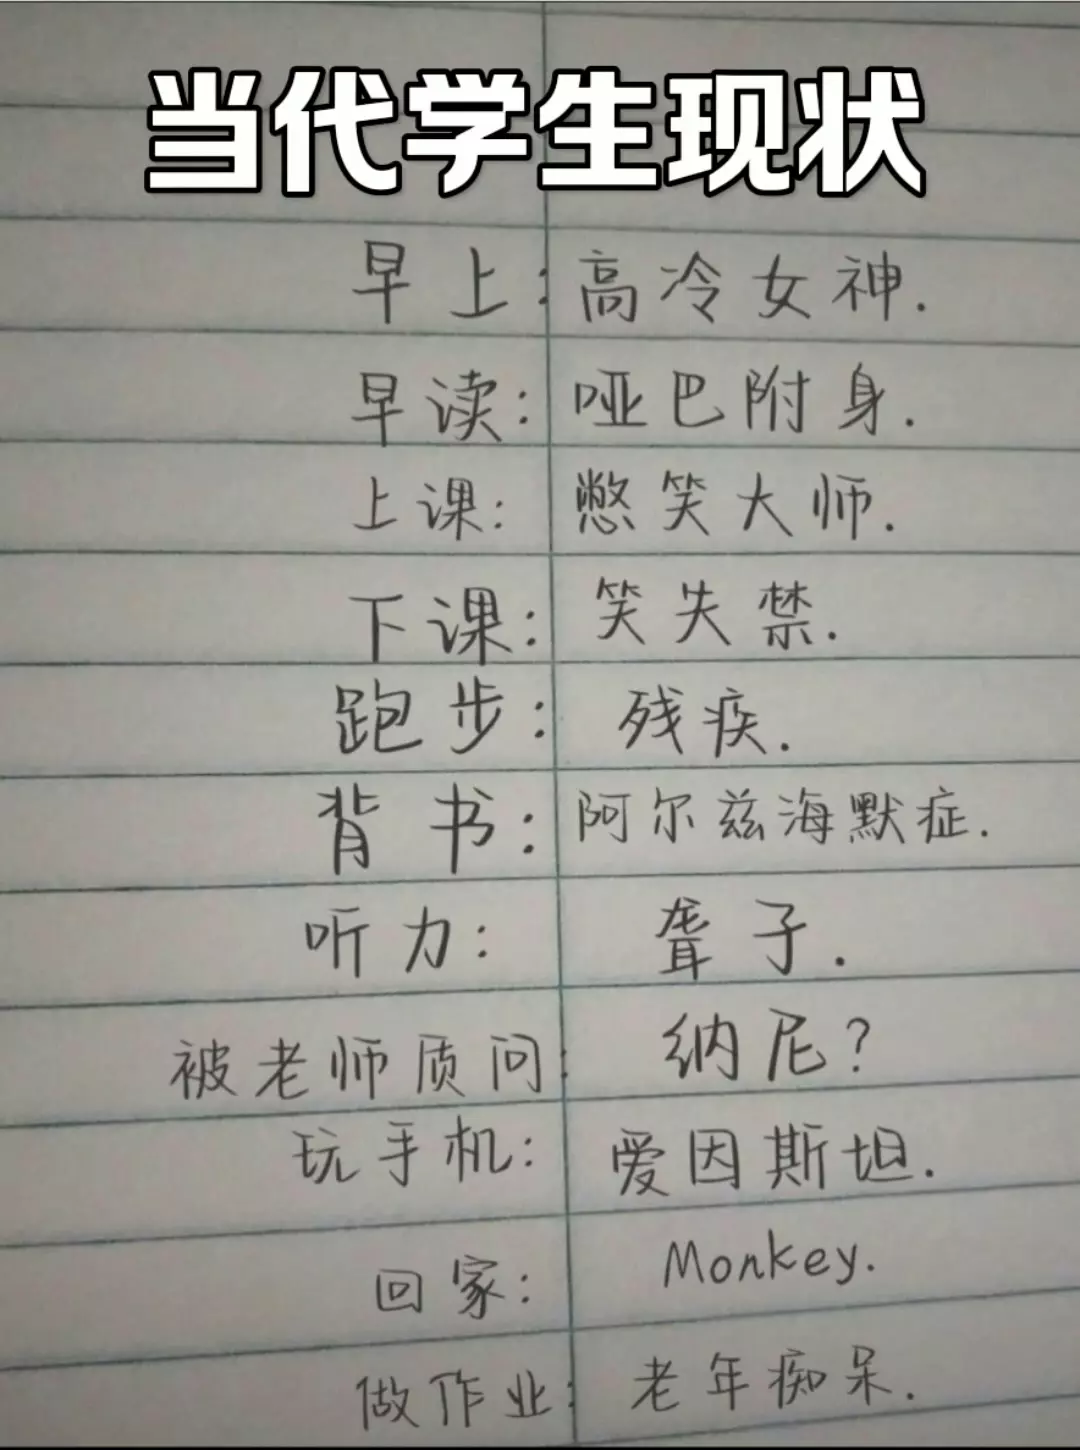 当代学生现状
早上：高冷女神.
早读：哑巴附身.
上课：憋笑大师.
下课：笑失禁.
跑步：残疾.
背书：阿尔兹海默症.
听力：聋子.
被老师质问：纳尼？
玩手机：爱因斯坦.
回家：Monkey.
做作业：老年痴呆.